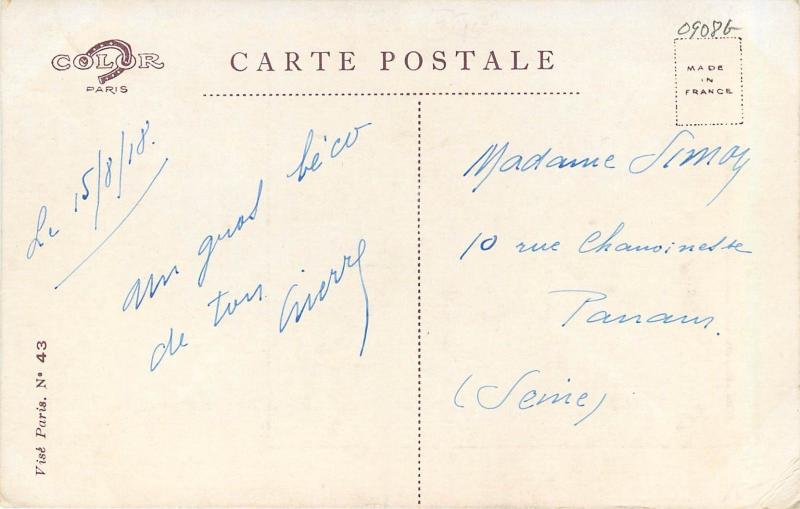 COLOR
PARIS
CARTE POSTALE
0908b
MADE
IN
FRANCE
Le 15/8/18.
un gros béco
de ton Pierre
Madame Simon
10 rue Chanoinesse
Panam.
(Seine)
Visé Paris. Nº 43